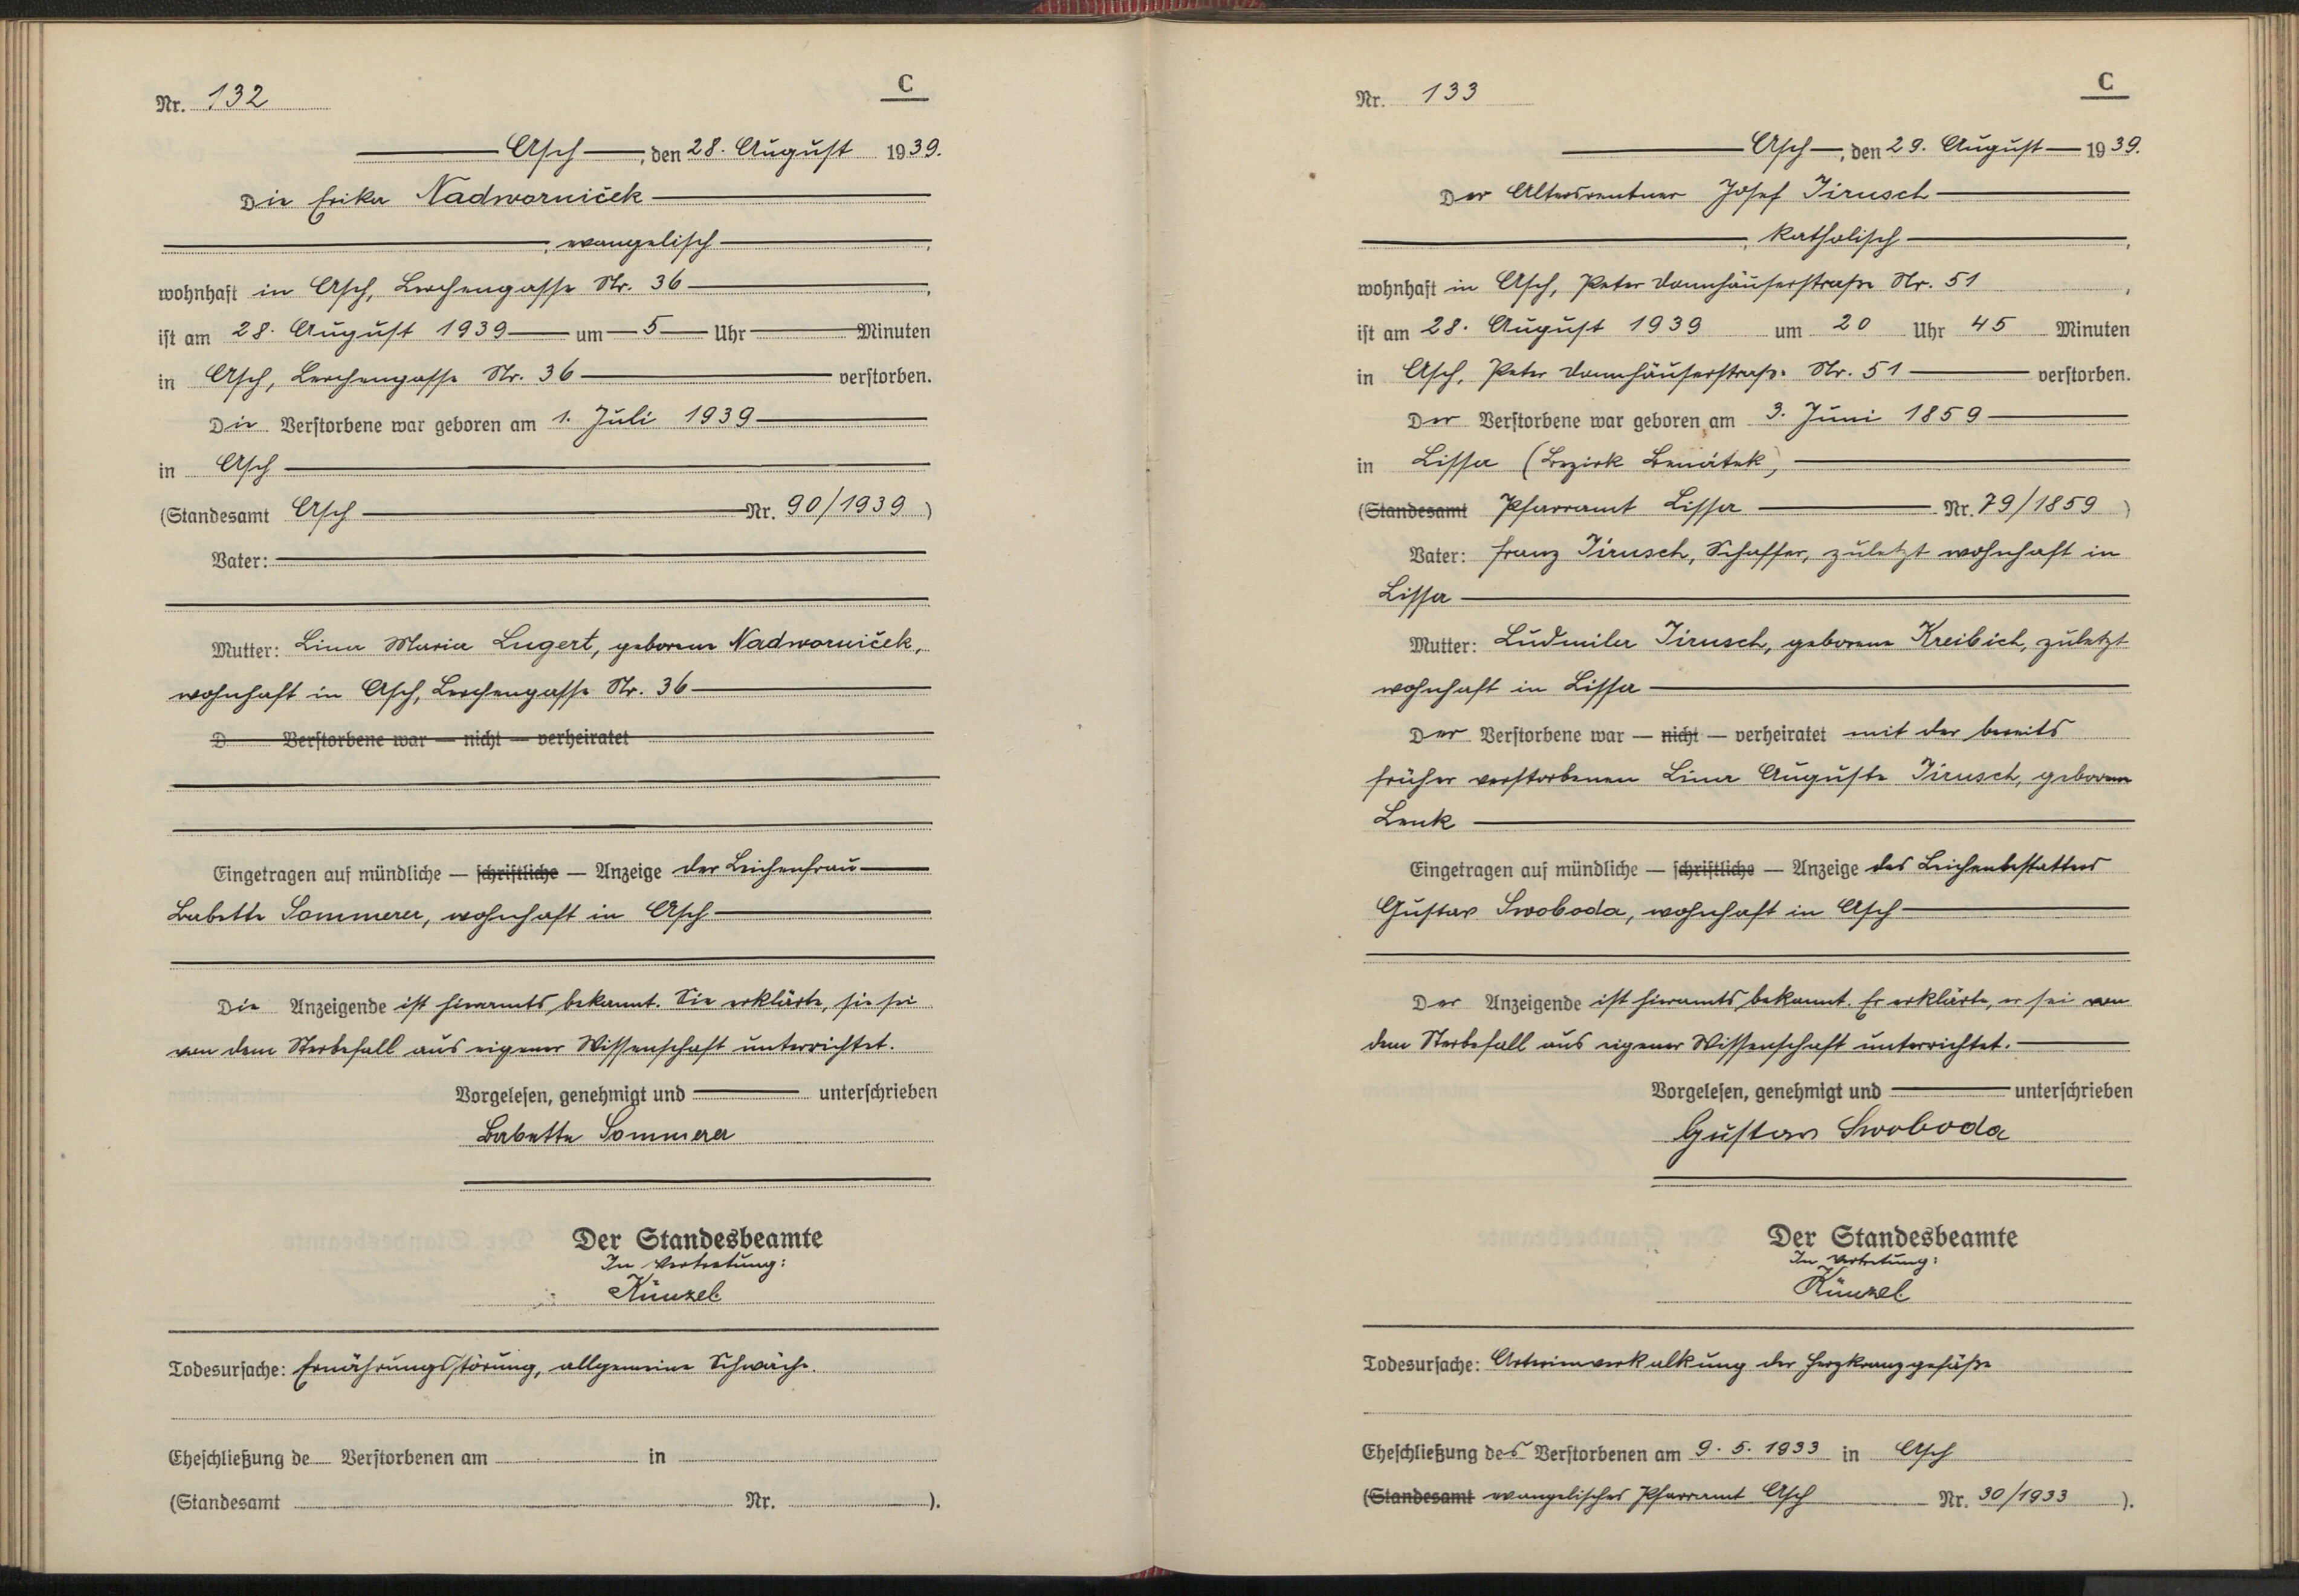 C
Nr. 132
Asch, den 28. August 1939.
Die Erika Nadworniček
, evangelisch,
wohnhaft in Asch, Lerchengasse Nr. 36,
ist am 28. August 1939 um 5 Uhr Minuten
in Asch, Lerchengasse Nr. 36 verstorben.
Die Verstorbene war geboren am 1. Juli 1939
in Asch
(Standesamt Asch Nr. 90/1939)
Vater:
Mutter: Lina Maria Lugert, geborene Nadworniček,
wohnhaft in Asch, Lerchengasse Nr. 36
D Verstorbene war — nicht — verheiratet
Eingetragen auf mündliche — schriftliche — Anzeige der Leichenfrau
Babette Sommerer, wohnhaft in Asch
Die Anzeigende ist hieramts bekannt. Sie erklärte, sie sei
von dem Sterbefall aus eigener Wissenschaft unterrichtet.
Vorgelesen, genehmigt und unterschrieben
Babette Sommerer
Der Standesbeamte
In Vertretung:
Künzel.
Todesursache: Ernährungsstörung, allgemeine Schwäche.
Eheschließung de Verstorbenen am in
(Standesamt Nr. ).
C
Nr. 133
Asch, den 29. August 1939.
Der Altersrentner Josef Jirusch
, katholisch,
wohnhaft in Asch, Peter Donnhäuserstraße Nr. 51,
ist am 28. August 1939 um 20 Uhr 45 Minuten
in Asch, Peter Donnhäuserstraße Nr. 51 verstorben.
Der Verstorbene war geboren am 3. Juni 1859
in Lissa (Bezirk Benátek)
(Standesamt Pfarramt Lissa Nr. 79/1859)
Vater: Franz Jirusch, Schaffer, zuletzt wohnhaft in
Lissa
Mutter: Ludmila Jirusch, geborene Kreibich, zuletzt
wohnhaft in Lissa
Der Verstorbene war — nicht — verheiratet mit der bereits
früher verstorbenen Lina Auguste Jirusch, geborene
Lenk
Eingetragen auf mündliche — schriftliche — Anzeige des Leichenbestatters
Gustav Swoboda, wohnhaft in Asch
Der Anzeigende ist hieramts bekannt. Er erklärte, er sei von
dem Sterbefall aus eigener Wissenschaft unterrichtet.
Vorgelesen, genehmigt und unterschrieben
Gustav Swoboda
Der Standesbeamte
In Vertretung:
Künzel.
Todesursache: Arterienverkalkung der Herzkranzgefäße
Eheschließung des Verstorbenen am 9. 5. 1933 in Asch
(Standesamt evangelisches Pfarramt Asch Nr. 30/1933).